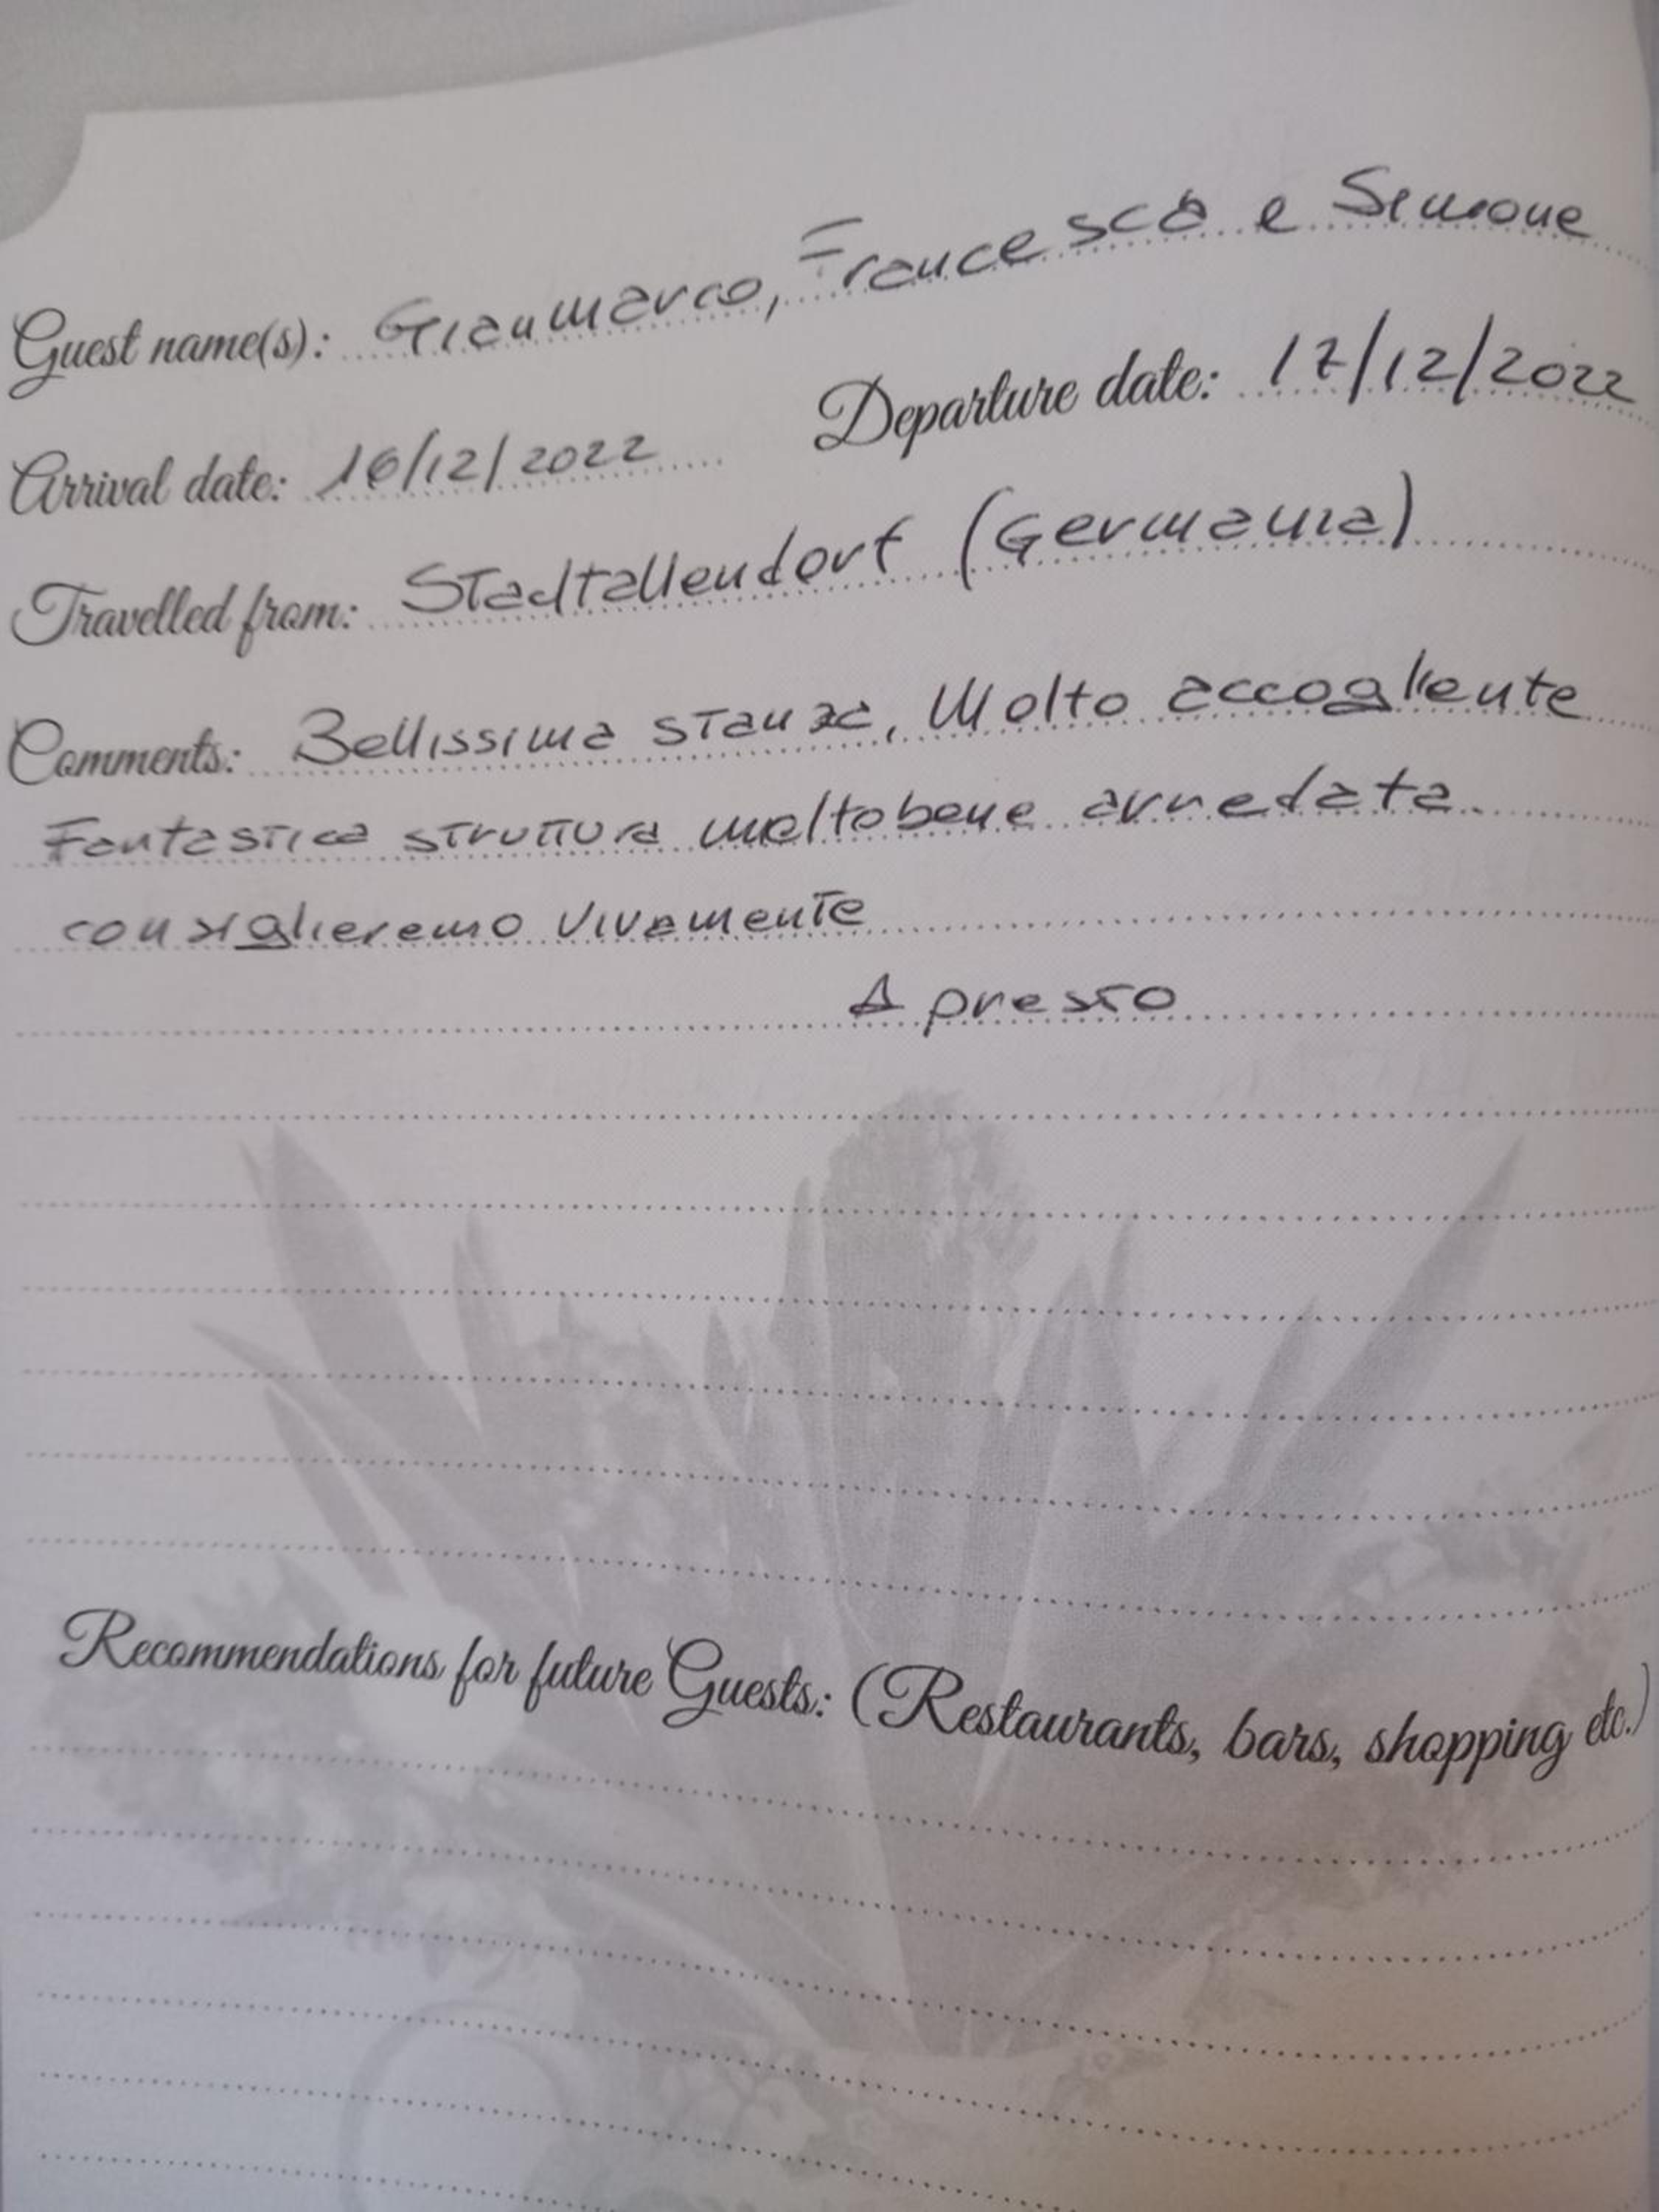 Guest name(s): Gianmarco, Francesco e Simone
Arrival date: 16/12/2022 Departure date: 17/12/2022
Travelled from: Stadtallendorf (Germania)
Comments: Bellissima stanza, Molto accogliente
Fantastica struttura molto bene arredata
consiglieremo vivamente
A presto
Recommendations for future Guests: (Restaurants, bars, shopping etc.)